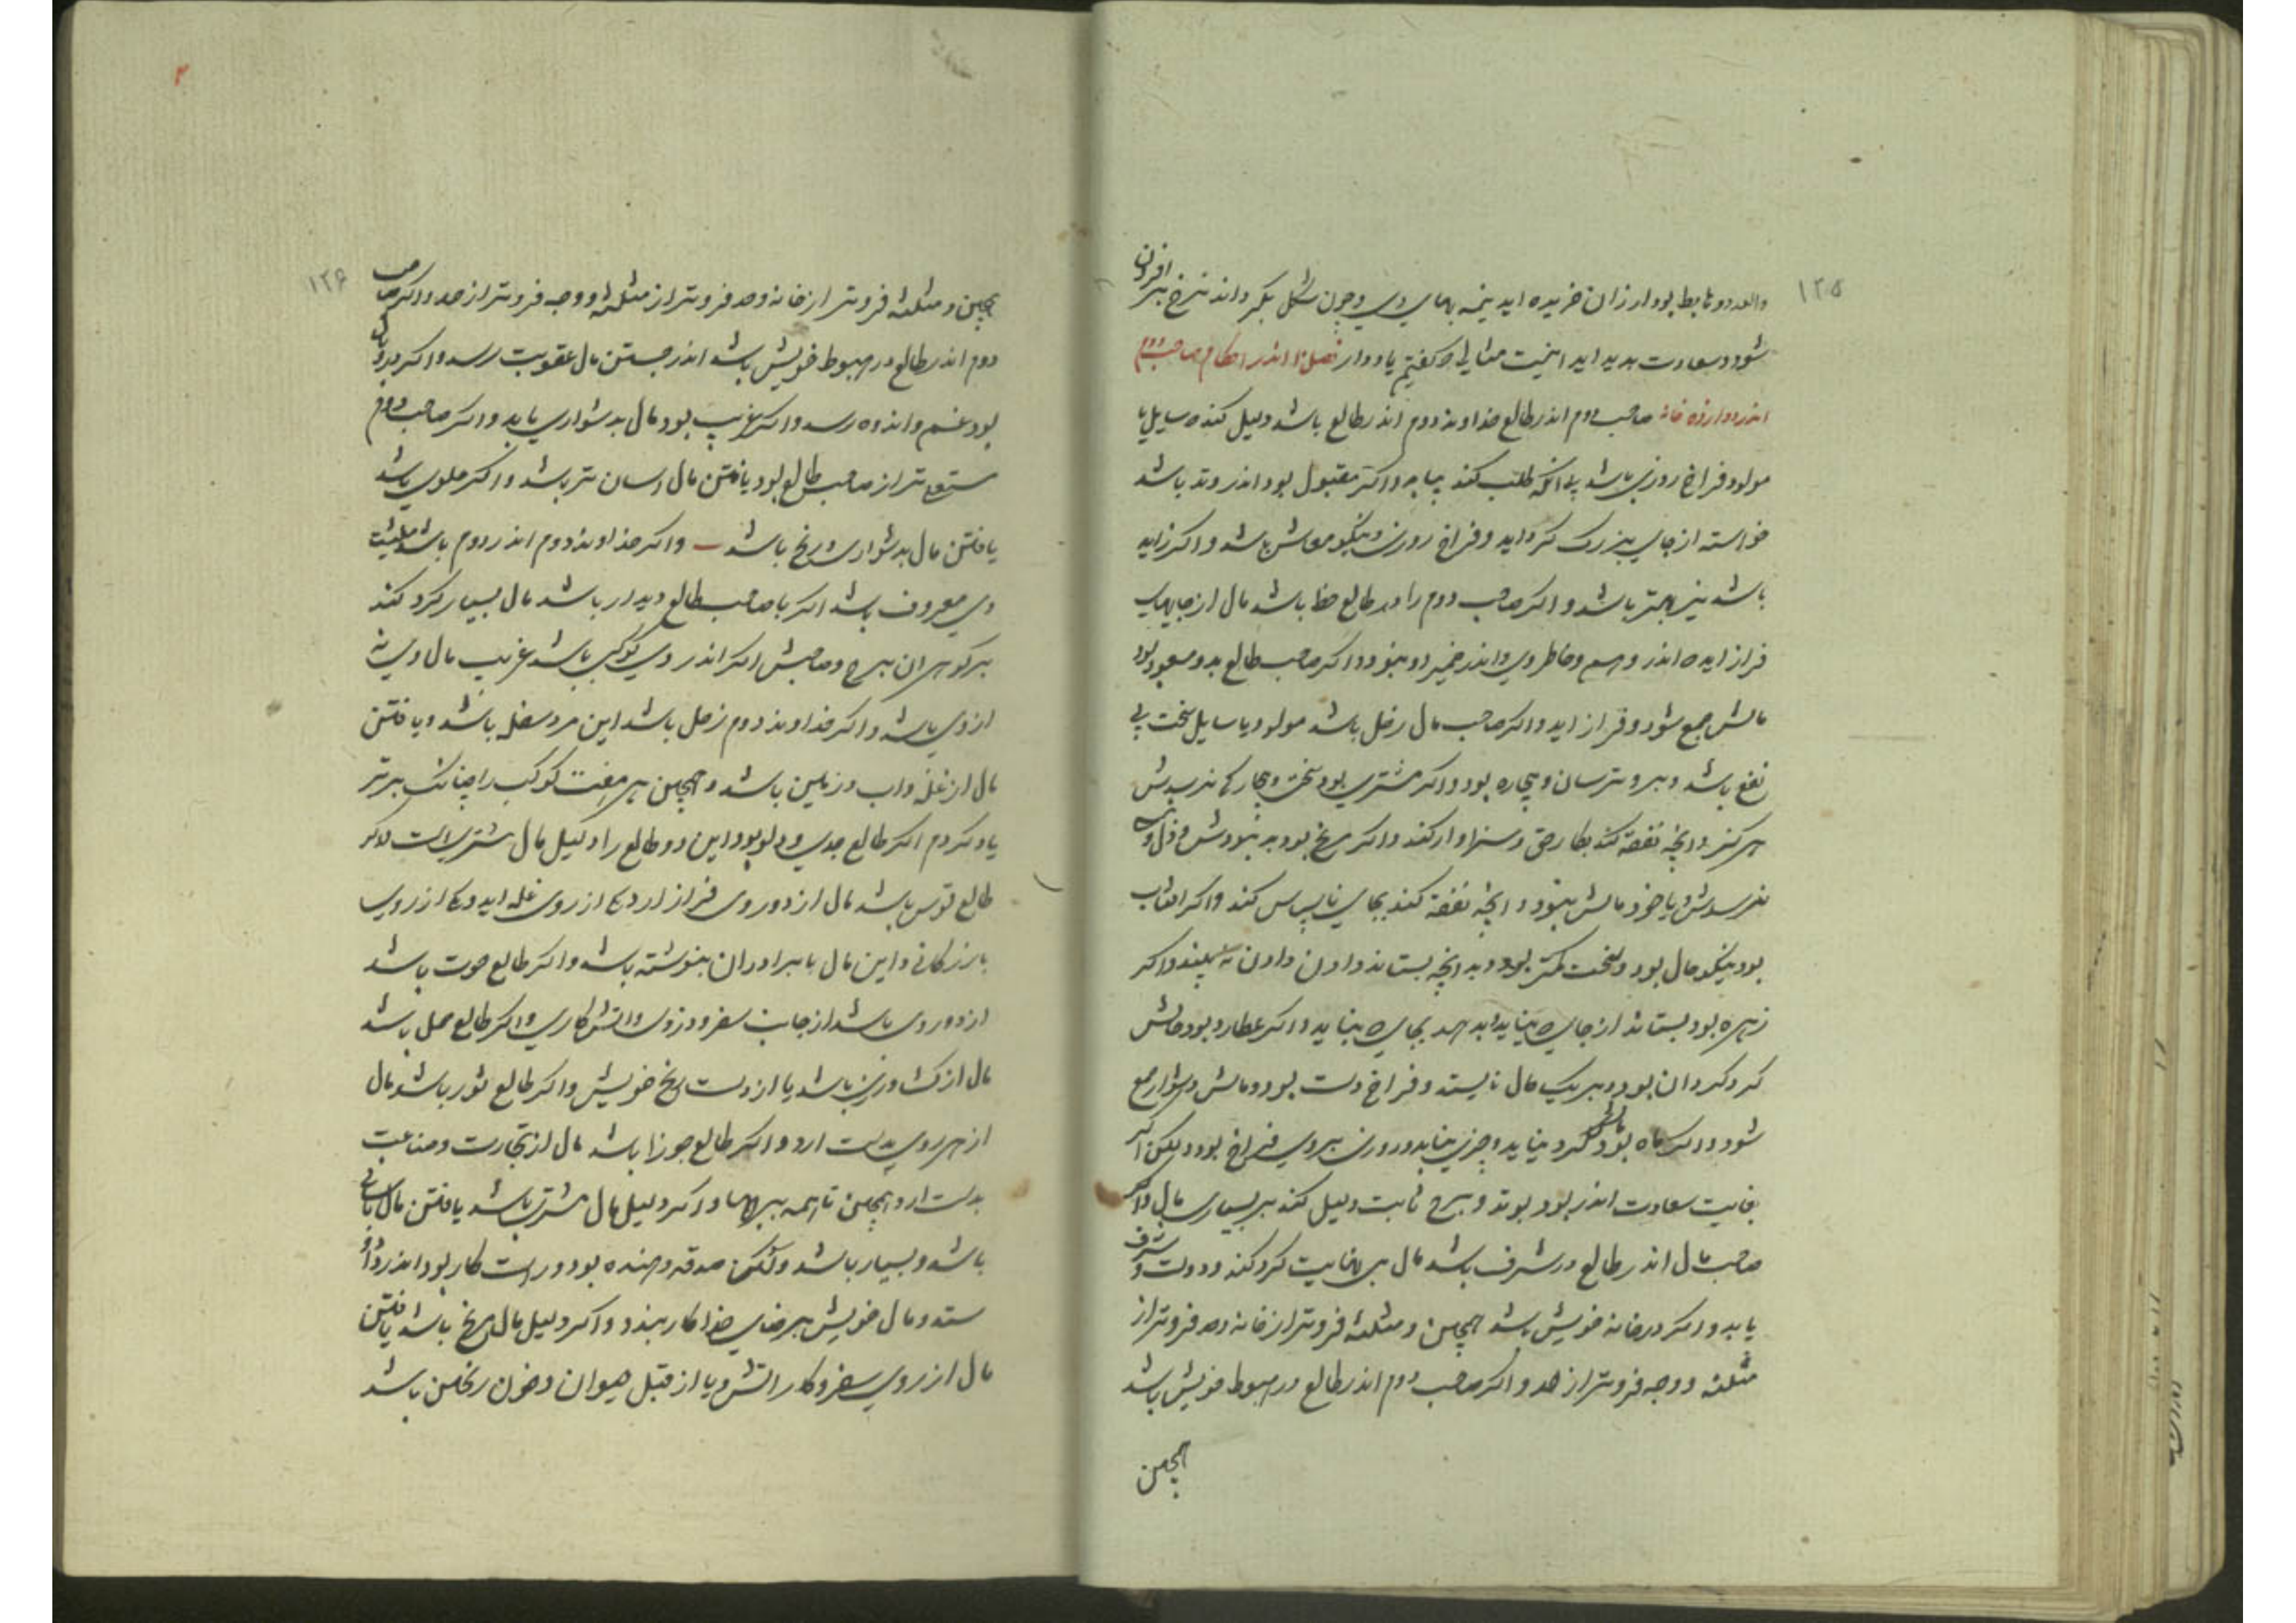 ۱۲۵
والعددو هابط بود ارزان خریده اید نیمه بهای وی و چون شکل بگرداند نرخ بر افزون
شود و سعادت پدید اید اینست مثالی که گفتیم یاد دار فصل اندر احکام صاحب دوم
اندر دوازده خانه صاحب دوم اندر طالع خداوند دوم اندر طالع باشد دلیل کند ه سایل یا
مولود فراخ روزی باشد بی انکه طلب کند بیابد و اکر مقبول بود اندر وتد باشد
خواسته از جای بزرک کرد اید و فراخ روزی و نیکو معاش باشد و اکر زاید
باشد نیز بهتر باشد و اکر صاحب دوم را اندر طالع حظ باشد مال از جایهای
فراز ایده اندر وهم و خاطر وی و اندر ضمیر او بنود و اکر صاحب طالع بدو مسعود بود
مالش جمع شود و فراز اید و اکر صاحب مال زحل باشد مولود یا سایل سخت بی
نفع باشد و برو ترسان و بیچاره بود و اکر مشتری بود سختی و بیچارکی نرسدش
هرکز و انچه نفقه کند بکار حق و سزاوار کند و اکر مریخ بود به بلا و ش و ذل
نرسدش و یا خود مالش بنود و انچه نفقه کند بجای ناسپاس کند و اکر افتاب
بود نیکو حال بود و سخت مکثر بود و بد انچه بستاند و ادون دادن نه پسندد و اکر
زهره بود بستاند از جای ه بباید و بدهد بجای ه بباید و اکر عطارد بود مالش
کرد کردان بود و بر یک حال نایستد و فراخ دست بود و مالش دشوار جمع
شود و اکر ماه بود مالش کرد بیاید و چیزی بیابد و روزی بروی فراخ بود ولیکن اکر
بغایت سعادت اندر بود بوتد و برج ثابت دلیل کند بر بسیاری مال و اکر
صاحب مال اندر طالع در شرف باشد مال بی نهایت کرد کند و دولت و شرف
یابد و اکر در خانه خویش باشد همچنین و مثلثه فروتر از خانه و حد فروتر از
مثلثه و وجه فروتر از حد و اکر صاحب دوم اندر طالع در هبوط خویش باشد
همچنین
۱۲۶
همچنین و مثلثه فروتر از خانه و حد فروتر از مثلثه و وجه فروتر از حد و اکر صاحب
دوم اندر طالع در هبوط خویش باشد اندر جستن مال عقوبت رسد و اکر در وبال
بود غم و اندوه رسد و اکر غریب بود مال بدشواری یابد و اکر صاحب دوم
سریع تر از صاحب طالع بود یافتن مال اسان تر باشد و اکر علوی باشد
یافتن مال بدشواری و رنج باشد واکر خداوند دوم اندر دوم باشد معیشت
وی معروف باشد اکر با صاحب طالع دیدار باشد مال بسیار کرد کند
بر کوهر ان برج و صاحبش اکر اندر وی کوکبی باشد غریب مال وی نه
از وی باشد و اکر خداوند دوم زحل باشد این مرد سفله باشد و یافتن
مال از غله و اب و زمین باشد و همچنین هر هفت کوکب را چنانک برتر
یاد کردم اکر طالع جدی و دلو بود این دو طالع را دلیل مال مشتری است و اکر
طالع قوس باشد مال از دو روی فراز ارد یکی از روی غله اید و یکی از روی
بازرکانی و این مال با برادران بنوشته باشد و اکر طالع حوت باشد
از دو روی باشد از جانب سفر و دزدی و اتش کاری و اکر طالع حمل باشد
مال از کشاورزی باشد یا از دست رنج خویش و اکر طالع ثور باشد مال
از هر روی بدست ارد و اکر طالع جوزا باشد مال از تجارت و صناعت
بدست ارد و همچنین تا همه برجها و اکر دلیل مال مشتری باشد یافتن مال باسانی
باشد و بسیار باشد ولکن صدقه دهنده بود و راست کار بود اندر داد و
ستد و مال خویش بر رضای خدا کار بندد و اکر دلیل مال مریخ باشد یافتن
مال از روی سفر و کار اتش و یا از قبل حیوان و خون ریختن باشد